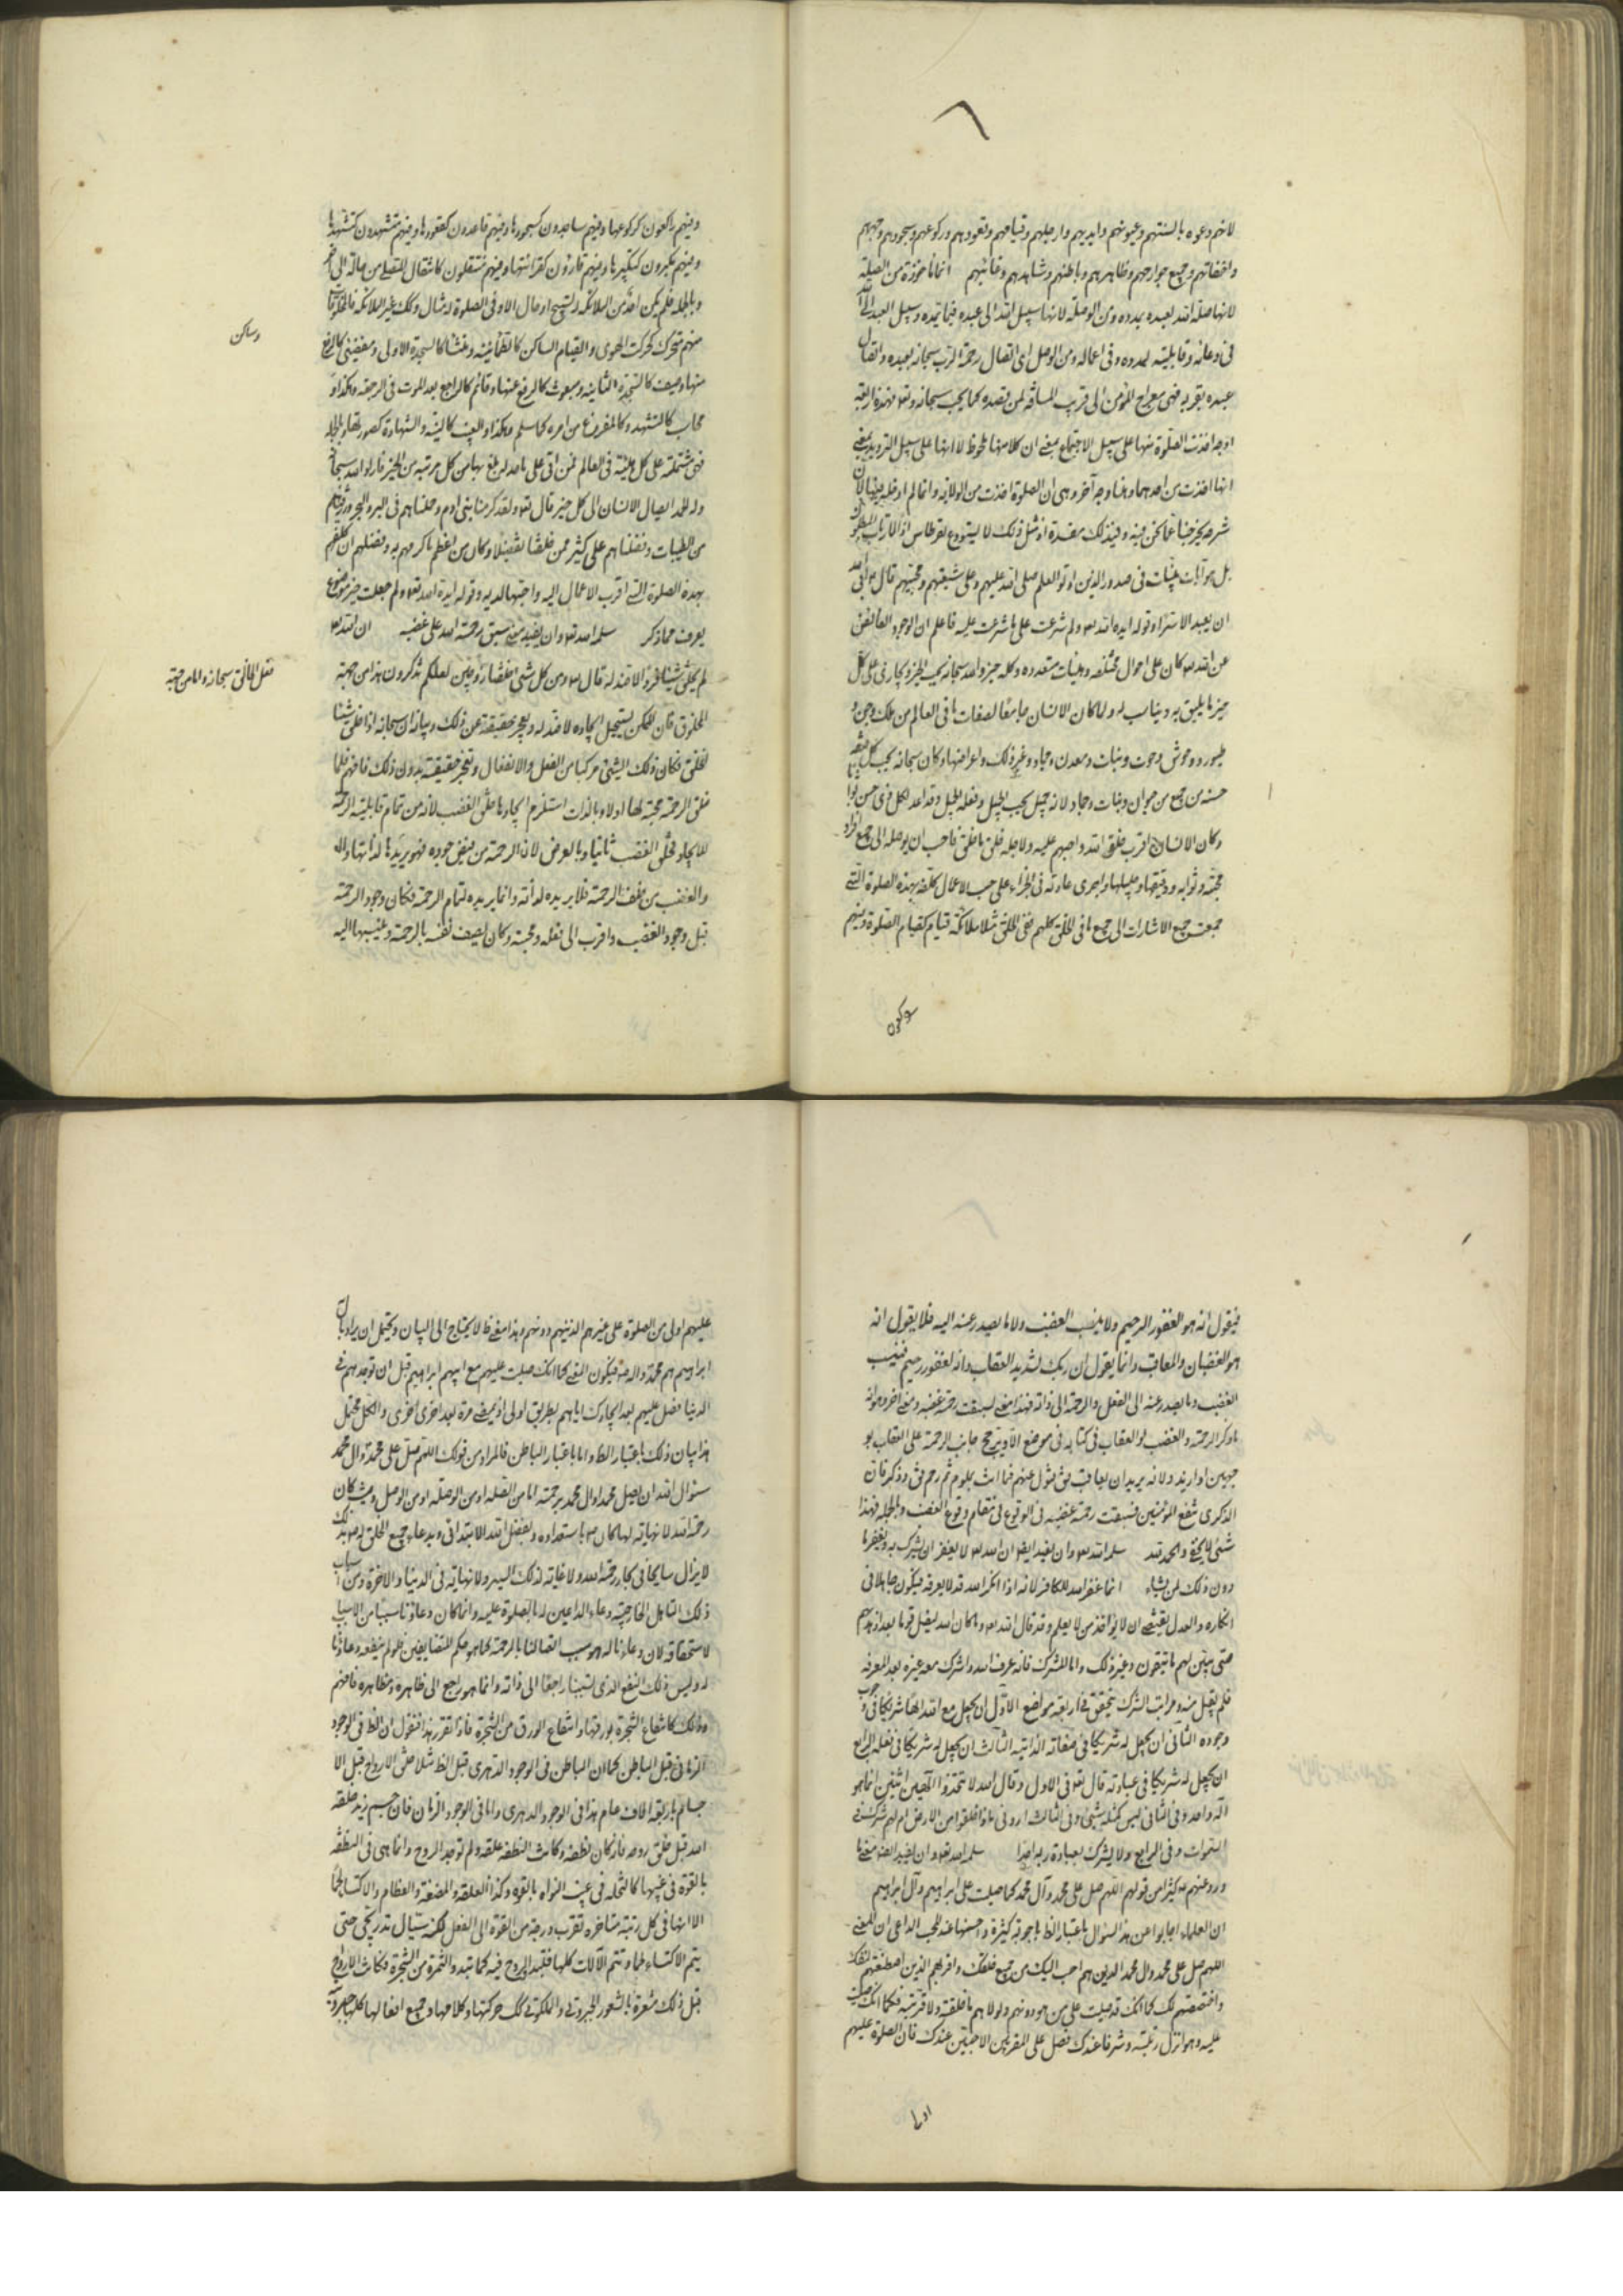 لانهم دعوه بالسنتهم وعيونهم وايديهم وارجلهم وقيامهم وقعودهم وركوعهم وسجودهم وجباههم
والتفاتهم وجميع جوارحهم وظاهرهم وباطنهم وشاهدهم وغائبهم انها ماخوذة من الصلة
لانها صلة الله لعبده بمدده ومن الوصلة لانها سبيل الله الى عبده فيما يمده وسبيل العبد الى الله
فى دعائه وقابليته لمدده وفى اعماله ومن الوصل اى اتصال رحمة الرب سبحانه بعبده واتصال
عبده بقربه فهى معراج المؤمن الى قريب المسافة لمن قصده كما يحب سبحانه وتعالى فهذه اربعة
اوجه اخذت الصلوة منها على سبيل الاجتماع بمعنى ان كلا منها ملحوظ لا انها على سبيل الترديد بمعنى
انها اخذت من احدهما وهنا وجه آخر وهى ان الصلوة اخذت من الولاية وانما لم ادخله فيها لان
شرحه يخرجنا عما نحن فيه وفيه ذلك مفسدة اذ مثل ذلك لا يستودع القرطاس اذا لارتاب المبطلون
بل هو آيات بينات فى صدور الذين اوتوا العلم صلى الله عليهم وعلى شيعتهم ومحبيهم قال ابى الله
ان يعبد الا سرا وقوله ايده الله تعالى ولم شرعت على ما شرعت عليه فاعلم ان الوجود الفائض
عن الله تعالى كان على احوال مختلفه وهيئات متعدده وكله خير والله سبحانه يحب الخير ويجازى على كل
خير ما يليق به ويناسب له ولما كان الانسان جامعا لصفات ما فى العالم من ملك وجن و
طيور ووحوش وحوت ونبات ومعدن وجماد وغير ذلك واعراضها وكان سبحانه يحب كل صفة
حسنة من جميع من حيوان ونبات وجماد لانه جميل يحب الجميل وفعله الجميل وقد اعد لكل ذى حسن ثوابا
وكان الانسان اقرب خلق الله واحبهم عليه ولاجله خلق ما خلق فاحب ان يوصله الى جميع افراد
محبته وثوابه ودقيقها وجليلها واجرى عادته فى الجزاء على حسب الاعمال كلفه بهذه الصلوة التى
جمعت جميع الاشارات الى جميع ما فى الخلق كلهم ففى الخلق مثلا ملائكة قيام كقيام الصلوة ومنهم
ومنهم راكعون كركوعها ومنهم ساجدون كسجودها ومنهم قاعدون كقعودها ومنهم متشهدون كتشهدها
ومنهم مكبرون كتكبيرها ومنهم قارئون كقرائتها ومنهم منتقلون كانتقال المصلى من حالة الى اخرى
وبالجملة فلم يكن احد من الملائكة فى تسبيح او حال الا وفى الصلوة له مثال وكذلك غير الملائكة فالمخلوقات
منهم متحرك كحركات الهوى والقيام الساكن كالطمانينه وغشا كالسجدة الاولى ومفيق كالرفع
وساكن
منها وميت كالسجدة الثانيه ومبعوث كالرفع عنها وقائم كالراجع بعد الموت فى الرجعة وهكذا و
محاب كالتشهد وكالمفروغ من امره كما سلم وهكذا والغيب كالنية والشهادة كصورتها وبالجملة
فهى مشتملة على كل هيئة فى العالم فمن اتى على ما حد له بلغ بها من كل مرتبة من الخير فاراد الله سبحانه
وله الحمد ايصال الانسان الى كل خير قال تعالى ولقد كرمنا بنى ادم وحملناهم فى البر والبحر ورزقناهم
من الطيبات وفضلناهم على كثير ممن خلقنا تفضيلا وكان من اعظم ما كرمهم به وفضلهم ان كلفهم
بهذه الصلوة التى اقرب الاعمال اليه واحبها لديه وقوله ايده الله تعالى ولم جعلت خير موضوع
يعرف مما ذكر سلمه الله تعالى وان يفيد معنى سبق رحمة الله على غضبه ان الله تعالى
لم يخلق شيئا فردا لا ضد له قال تعالى ومن كل شىء خلقنا زوجين لعلكم تذكرون هذا من جهة
فعل الخالق سبحانه واما من جهة
المخلوق فان الممكن يستحيل ايجاده لا ضد له ويعجز حقيقته عن ذلك وبيانه ان سبحانه اذا خلق شيئا
انخلق فكان ذلك الشىء مركبا من الفعل والانفعال وتعجز حقيقته بدون ذلك فافهم فلما
خلق الرحمة محبة لها اولا وبالذات استلزم ايجادها خلق الغضب لانه من تمام قابلية الرحمة
للايجاد فخلق الغضب ثانيا وبالعرض لان الرحمة من فيض جوده فهو يريدها لذاتها واله
والغضب من خلف الرحمة فلا يريده لذاته وانما يريده لتمام الرحمة فكان وجود الرحمة
قبل وجود الغضب واقرب الى فعله ومحبته وكان يصف نفسه بالرحمة وينسبها اليه
فيقول انه هو الغفور الرحيم ولا ينسب الغضب ولا ما يصدر عنه اليه فلا يقول انه
هو الغضبان والمعاقب وانما يقول ان ربك لشديد العقاب وانه لغفور رحيم فينسب
الغضب وما يصدر عنه الى الفعل والرحمة الى ذاته فهذا معنى لسبقت رحمته غضبه ومعنى اخر وهو انه
ما ذكر الرحمة والغضب او العقاب فى كتابه فى موضع الا ويترجح جانب الرحمة على العقاب بو
جهين او ازيد ولانه يريد ان يعاقب فتول عنهم فما انت بملوم ثم رحم فقال وذكر فان
الذكرى تنفع المؤمنين فسبقت رحمته غضبه فى الوقوع فى مقام وقوع الغضب وبالجملة فهذا
شىء لا يخفى والحمد لله سلمه الله تعالى وان يفيد ايضا ان الله تعالى لا يغفر ان يشرك به ويغفر ما
دون ذلك لمن يشاء انما غفر الله للكافر لانه اذا انكر الله قد لا يعرفه فيكون جاهلا فى
انكاره والعدل يقتضى ان لا يؤاخذ من لا يعلم وقد قال الله تعالى وما كان الله ليضل قوما بعد اذ هديهم
حتى يبين لهم ما يتقون وغير ذلك واما المشرك فانه عرف الله واشرك معه غيره بعد المعرفة
فلم يقبل منه ومراتب الشرك يتحقق فى اربعة مواضع الاول ان يجعل مع الله الها شريكا فى وجوب
وجوده الثانى ان يجعل له شريكا فى صفاته الذاتيه الثالث ان يجعل له شريكا فى فعله الرابع
ان يجعل له شريكا فى عبادته قال تعالى فى الاول وقال الله لا تتخذوا الهين اثنين انما هو
اله واحد وفى الثانى ليس كمثله شىء وفى الثالث ارونى ماذا خلقوا من الارض ام لهم شرك فى
السموات وفى الرابع ولا يشرك بعبادة ربه احدا سلمه الله تعالى وان يفيد ايضا معنى ما
ورد عنهم كثيرا من قولهم اللهم صل على محمد وآل محمد كما صليت على ابراهيم وآل ابراهيم
ان العلماء اجابوا عن هذا السؤال باعتبار الظ باجوبة كثيرة واحسنها عند المحب الداعى ان المعنى
اللهم صل على محمد وال محمد الذين هم احب اليك من جميع خلقك واقربهم الذين اصطنعتهم لنفسك
واختصصتهم لك كما انك قد صليت على من هو دونهم ولولاهم ما خلقته ولا قربته فكما انك صليت
عليه وهو انزل رتبة وشرفا عندك فصل على المقربين الاحبين عندك فان الصلوة عليهم
اولى
عليهم اولى من الصلوة على غيرهم الذين هم دونهم وهذا معنى ظ لا يحتاج الى البيان ويحتمل ان يراد بال
ابراهيم هم محمد واله فيكون المعنى كما انك صليت عليهم مع ابيهم ابراهيم قبل ان توجدهم فى
الدنيا فصل عليهم بعد ايجادك اياهم بطريق اولى او بمعنى مرة بعد اخرى اخرى والكل محتمل
هذا بيان ذلك باعتبار الظ واما باعتبار الباطن فالمراد من قولك اللهم صل على محمد وال محمد
سؤال الله ان يصل محمدا وال محمد برحمته اما من الصلة او من الوصلة او من الوصل وحيث كان
رحمة الله لا نهاية لها كان باستعداده وبفضل الله الابتدائى وبدعاء جميع الخلق له بذلك
لا يزال سايحا فى بحار رحمة الله ولا غاية لذلك السير ولا نهاية فى الدنيا والاخرة ومن اسباب
ذلك التاهل الخارجية دعاء الداعين له بالصلوة عليه وانما كان دعاؤنا سببا من الاسباب
لاستحقاقه لان دعاءنا له هو سبب اتصالنا بالرحمة كما هو حكم المتضايفين فلو لم ينفعه دعاؤنا
له وليس ذلك النفع الذى لسببنا راجعا الى ذاته وانما هو راجع الى ظاهره ومظاهره فافهم
وذلك كانتفاع الشجرة بورقها وانتفاع الورق من الشجرة فاذا تقرر هذا فنقول ان الظ فى الوجود
الزمانى قبل الباطن كما ان الباطن فى الوجود الدهرى قبل الظ مثلا خلق الارواح قبل الا
جسام باربعة الاف عام هذا فى الوجود الدهرى واما فى الوجود الزمانى فان جسم زيد خلقه
الله قبل خلق روحه فانه كان نطفة وكانت النطفة علقة ولم توجد الروح وانما هى فى النطفة
بالقوة فى غيبها كالنخلة فى غيب النواه بالقوة وكذا العلقة والمضغة والعظام والاكتساء لحما
الا انها فى كل رتبة متاخرة تقرب درجة من القوة الى الفعل لكنه سيال تدريجى حتى
يتم الاكتساء لحما وتتم الآلات كلها فتبدو الروح فيه كما تبدو الثمرة من الشجرة وكانت الارواح
قبل ذلك مشعرة بالشعور الجبروتى والملكوتى كل حركتها وكلامها وجميع افعالها كلها جبروتية